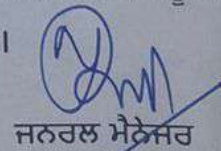 ।
ਜਨਰਲ ਮੈਨੇਜਰ